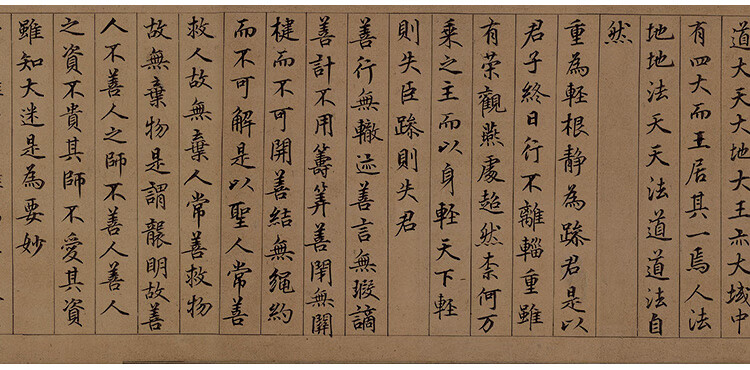 道大天大地大王亦大域中
有四大而王居其一焉人法
地地法天天法道道法自
然
重為輕根靜為躁君是以
君子終日行不離輜重雖
有荣觀燕處超然柰何万
乘之王而以身輕天下輕
則失臣躁則失君
善行無轍迹善言無瑕讁
善計不用籌筭善閇無關
楗而不可開善結無繩約
而不可解是以聖人常善
救人故無棄人常善救物
故無棄物是謂襲明故善
人不善人之師不善人善人
之資不貴其師不愛其資
雖知大迷是為要妙